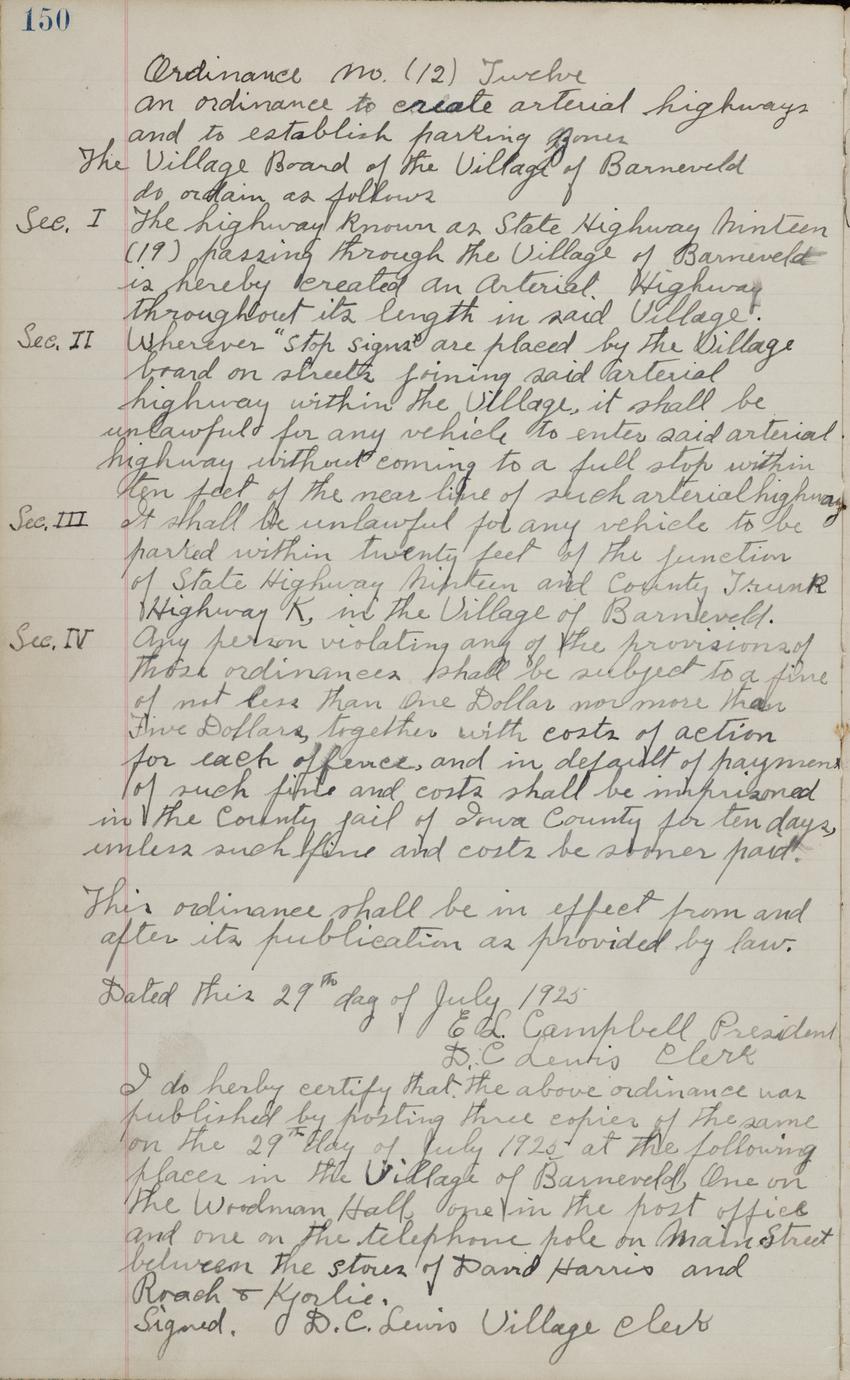 150
Ordinance No. (12) Twelve
an ordinance to create arterial highways
and to establish parking zones
The Village Board of the Village of Barneveld
do ordain as follows
Sec. I The highway known as State Highway Nineteen
(19) passing through the Village of Barneveld
is hereby created an Arterial Highway
throughout its length in said Village.
Sec. II Wherever "Stop signs" are placed by the Village
board on streets joining said arterial
highway within the Village, it shall be
unlawful for any vehicle to enter said arterial
highway without coming to a full stop within
ten feet of the near line of such arterial highway
Sec. III It shall be unlawful for any vehicle to be
parked within twenty feet of the junction
of State Highway Nineteen and County Trunk
Highway K, in the Village of Barneveld.
Sec. IV Any person violating any of the provisions of
those ordinances shall be subject to a fine
of not less than One Dollar nor more than
Five Dollars, together with costs of action
for each offence, and in default of payment
of such fine and costs shall be imprisoned
in the County jail of Iowa County for ten days,
unless such fine and costs be sooner paid.
This ordinance shall be in effect from and
after its publication as provided by law.
Dated this 29th day of July 1925
E L. Campbell President
D.C Lewis Clerk
I do herby certify that the above ordinance was
published by posting three copies of the same
on the 29th day of July 1925 at the following
places in the Village of Barneveld, One on
the Woodman Hall, one in the post office
and one on the telephone pole on Main Street
between the stores of David Harris and
Roach & Kjorlie.
Signed. D.C. Lewis Village Clerk